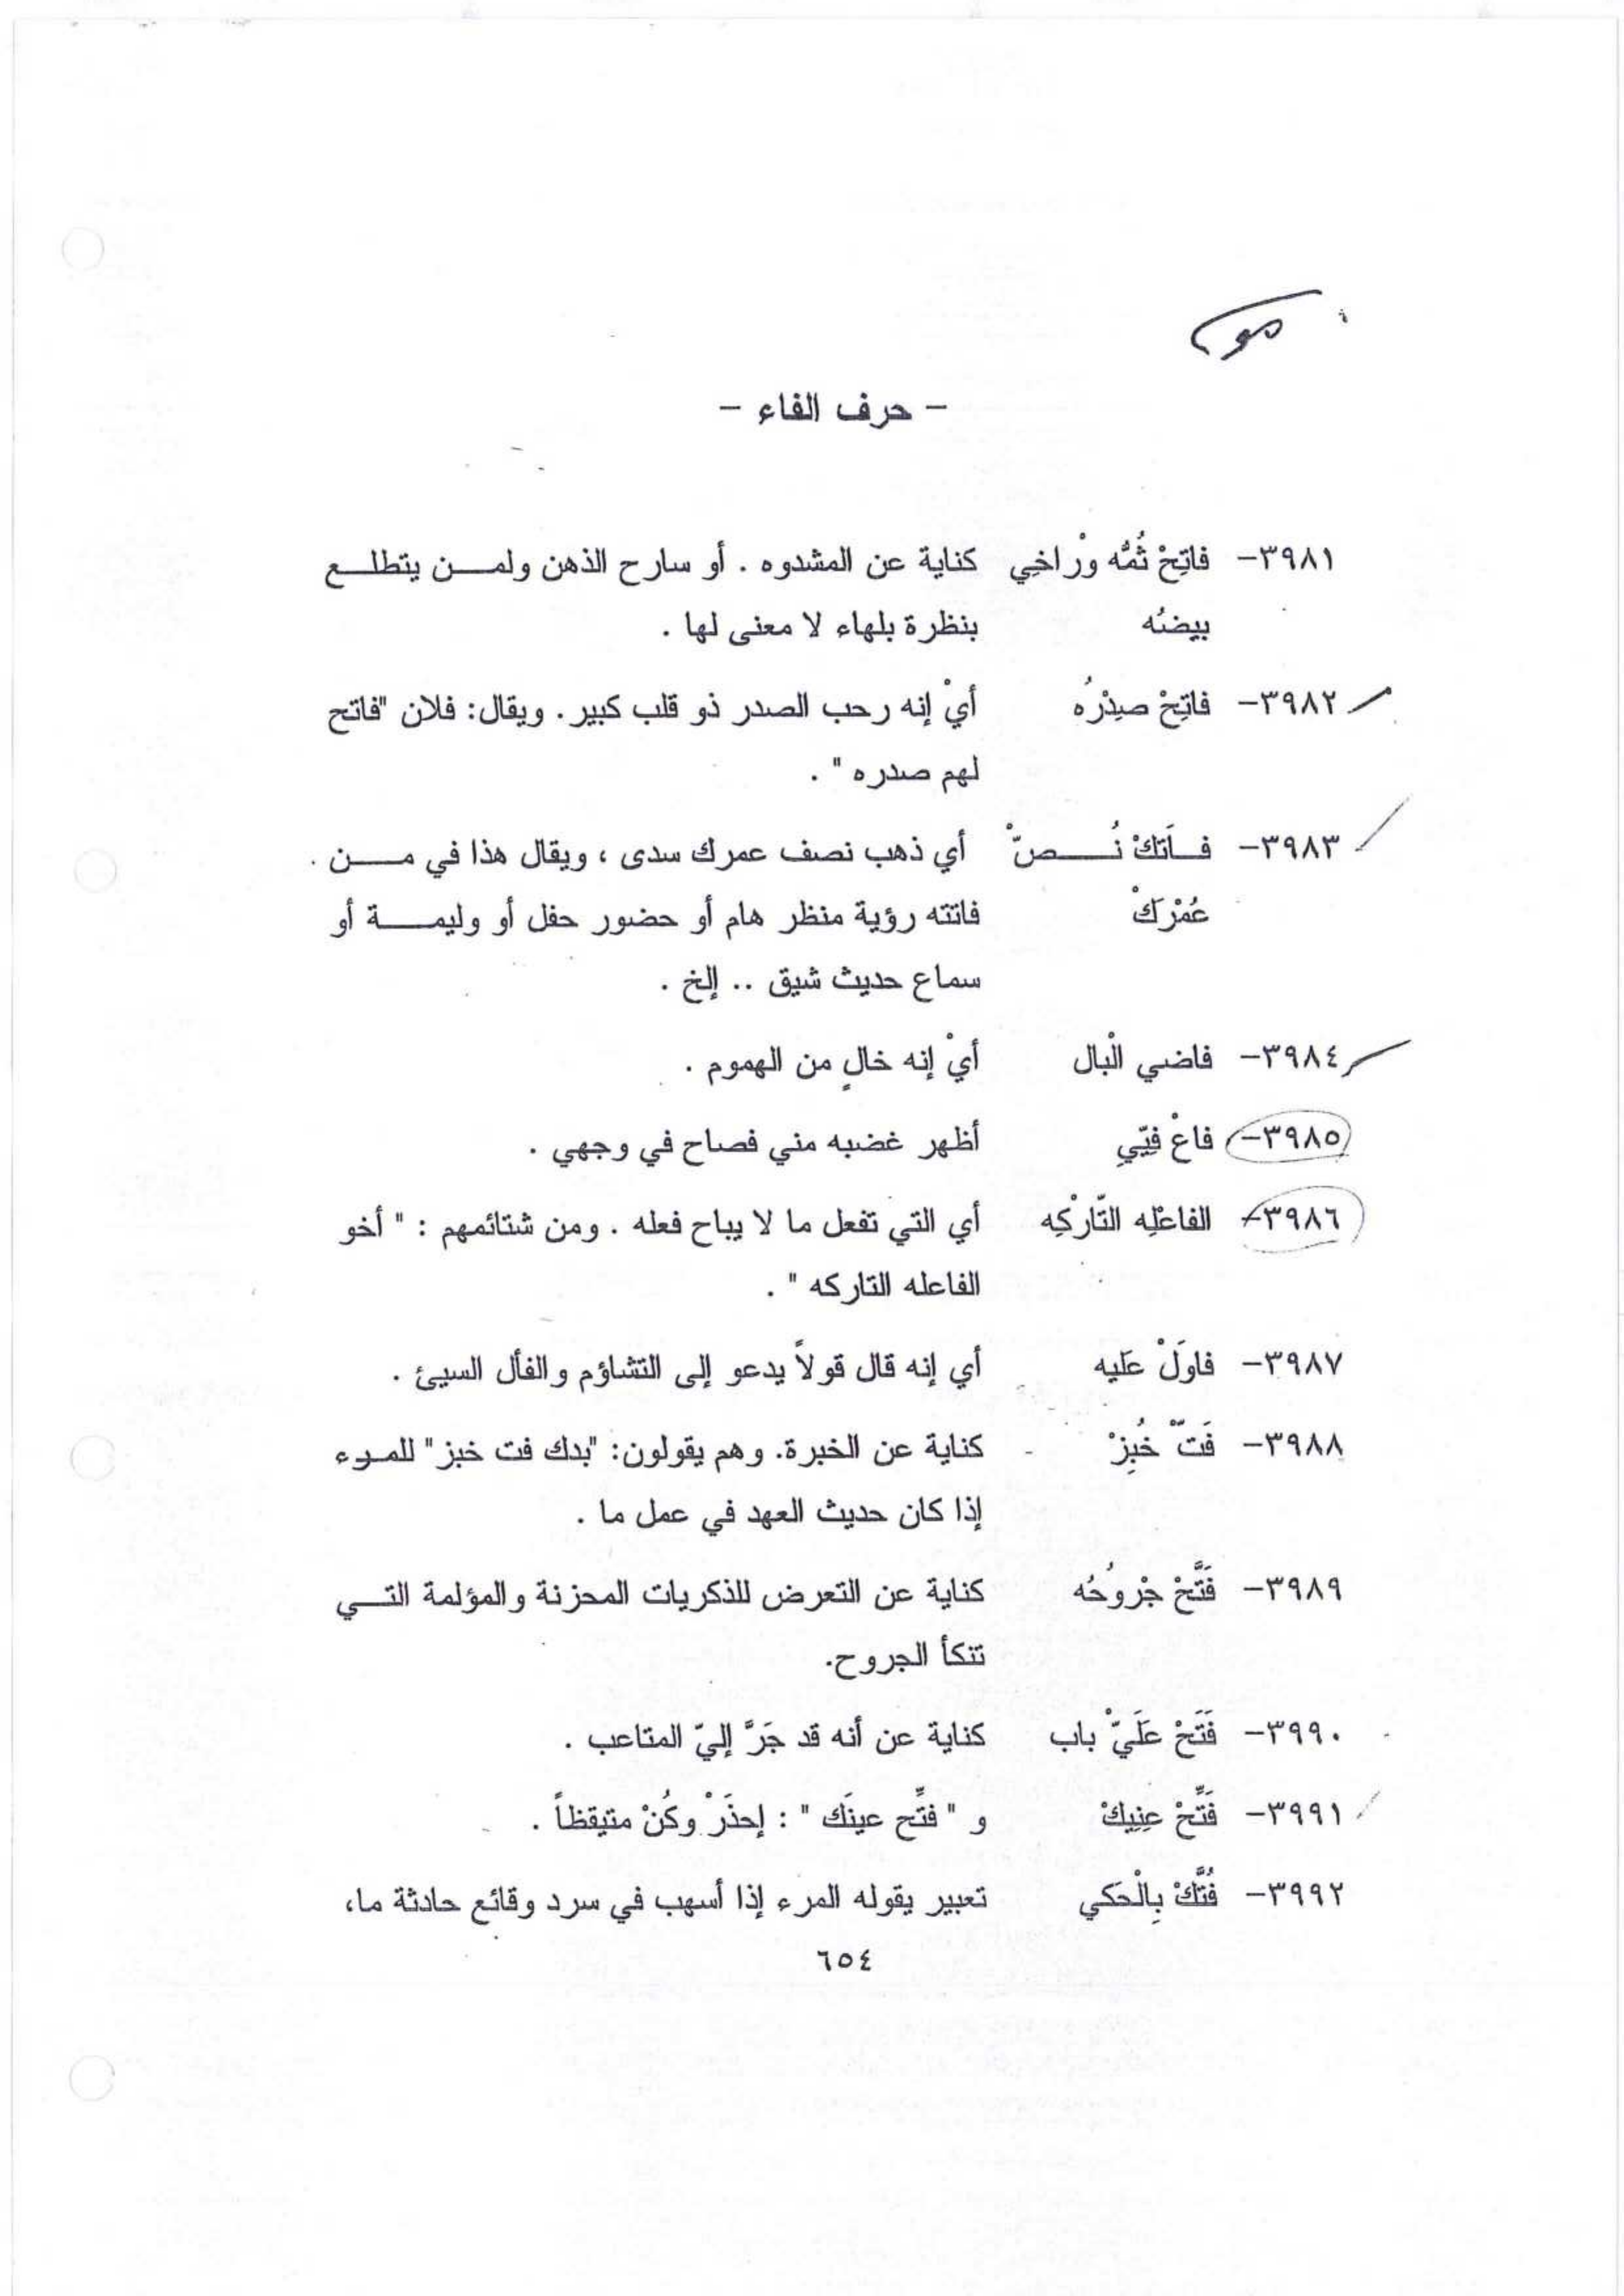 - حرف الفاء -
٣٩٨١- فاتِحْ ثُمُّه وْراخِي كناية عن المشدوه . أو سارح الذهن ولمن يتطلع
بيضتُه بنظرة بلهاء لا معنى لها .
٣٩٨٢- فاتِحْ صِدْرُه أيْ إنه رحب الصدر ذو قلب كبير. ويقال: فلان "فاتح
لهم صدره " .
٣٩٨٣- فاتَكْ نُصّْ أي ذهب نصف عمرك سدى ، ويقال هذا في من
عُمْرَكْ فاتته رؤية منظر هام أو حضور حفل أو وليمة أو
سماع حديث شيق .. إلخ .
٣٩٨٤- فاضي الْبال أيْ إنه خالٍ من الهموم .
٣٩٨٥- فاعْ فِيّي أظهر غضبه مني فصاح في وجهي .
٣٩٨٦- الفاعْلِه التّارْكِه أي التي تفعل ما لا يباح فعله . ومن شتائمهم : " أخو
الفاعله التاركه " .
٣٩٨٧- فاوَلْ عَليه أي إنه قال قولاً يدعو إلى التشاؤم والفأل السيئ .
٣٩٨٨- فَتّْ خُبِزْ كناية عن الخبرة. وهم يقولون: "بدك فت خبز" للمرء
إذا كان حديث العهد في عمل ما .
٣٩٨٩- فَتَّحْ جْروحُه كناية عن التعرض للذكريات المحزنة والمؤلمة التي
تنكأ الجروح.
٣٩٩٠- فَتَحْ عَلَيّْ باب كناية عن أنه قد جَرَّ إليّ المتاعب .
٣٩٩١- فَتِّحْ عِنِيكْ و " فتِّح عينَك " : إحذَرْ وكُنْ متيقظاً .
٣٩٩٢- فُتَّكْ بِالْحَكي تعبير يقوله المرء إذا أسهب في سرد وقائع حادثة ما،
٦٥٤